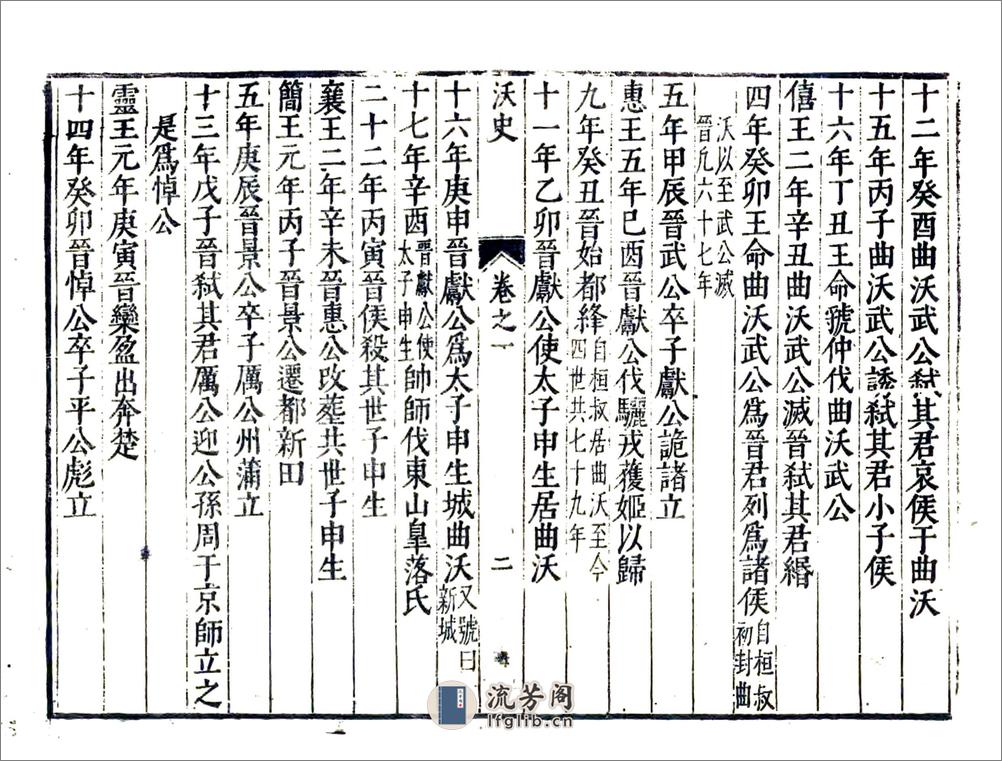 十二年癸酉曲沃武公弒其君哀侯于曲沃
十五年丙子曲沃武公誘弒其君小子侯
十六年丁丑王命虢仲伐曲沃武公
僖王二年辛丑曲沃武公滅晉弒其君緡
四年癸卯王命曲沃武公爲晉君列爲諸侯自桓叔初封曲
沃以至武公滅晉凡六十七年
五年甲辰晉武公卒子獻公詭諸立
惠王五年己酉晉獻公伐驪戎獲姬以歸
九年癸丑晉始都絳自桓叔居曲沃至今四世共七十九年
十一年乙卯晉獻公使太子申生居曲沃
沃史 卷之一 二
十六年庚申晉獻公爲太子申生城曲沃又號曰新城
十七年辛酉晉獻公使太子申生帥師伐東山皐落氏
二十二年丙寅晉侯殺其世子申生
襄王二年辛未晉惠公改葬共世子申生
簡王元年丙子晉景公遷都新田
五年庚辰晉景公卒子厲公州蒲立
十三年戊子晉弒其君厲公迎公孫周于京師立之
是爲悼公
靈王元年庚寅晉欒盈出奔楚
十四年癸卯晉悼公卒子平公彪立
流芳阁
lfglib.cn